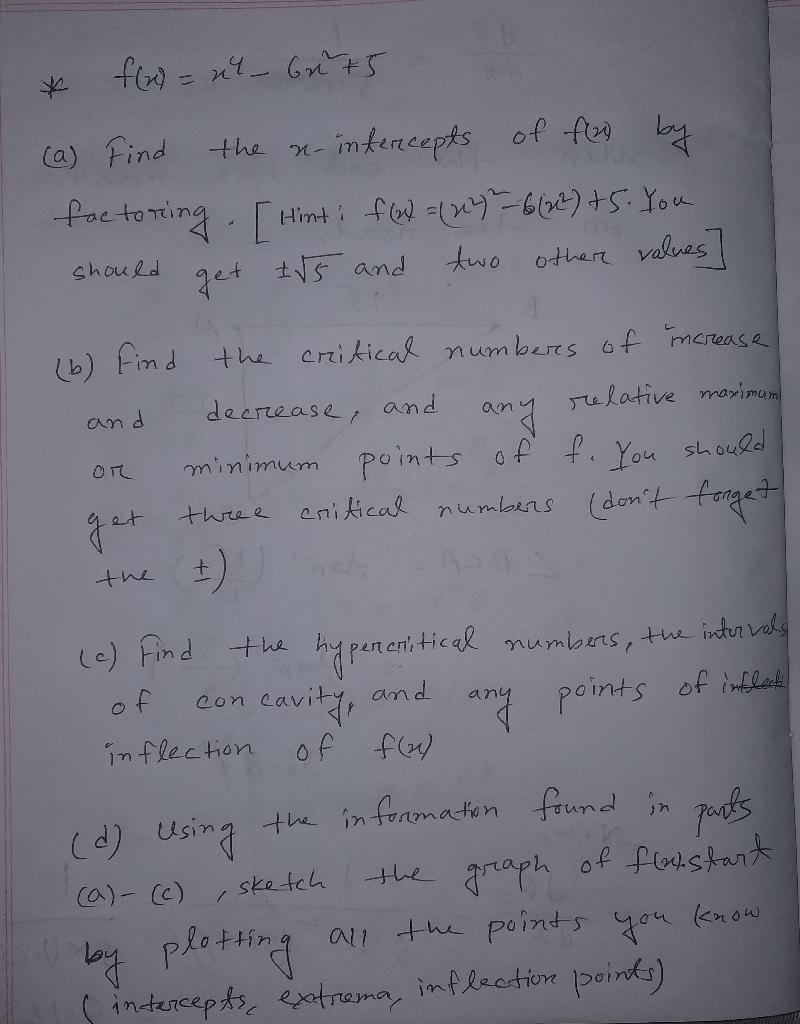 * f(x) = x⁴ - 6x² + 5
(a) Find the x-intercepts of f(x) by
factoring. [Hint: f(x) = (x²)² - 6(x²) + 5. You
should get ±√5 and two other values]
(b) Find the critical numbers of increase
and decrease, and any relative maximum
or minimum points of f. You should
get three critical numbers (don't forget
the ±)
(c) Find the hypercritical numbers, the intervals
of concavity, and any points of
inflection of f(x)
(d) Using the information found in parts
(a) - (c), sketch the graph of f(x). start
by plotting all the points you know
(intercepts, extrema, inflection points)